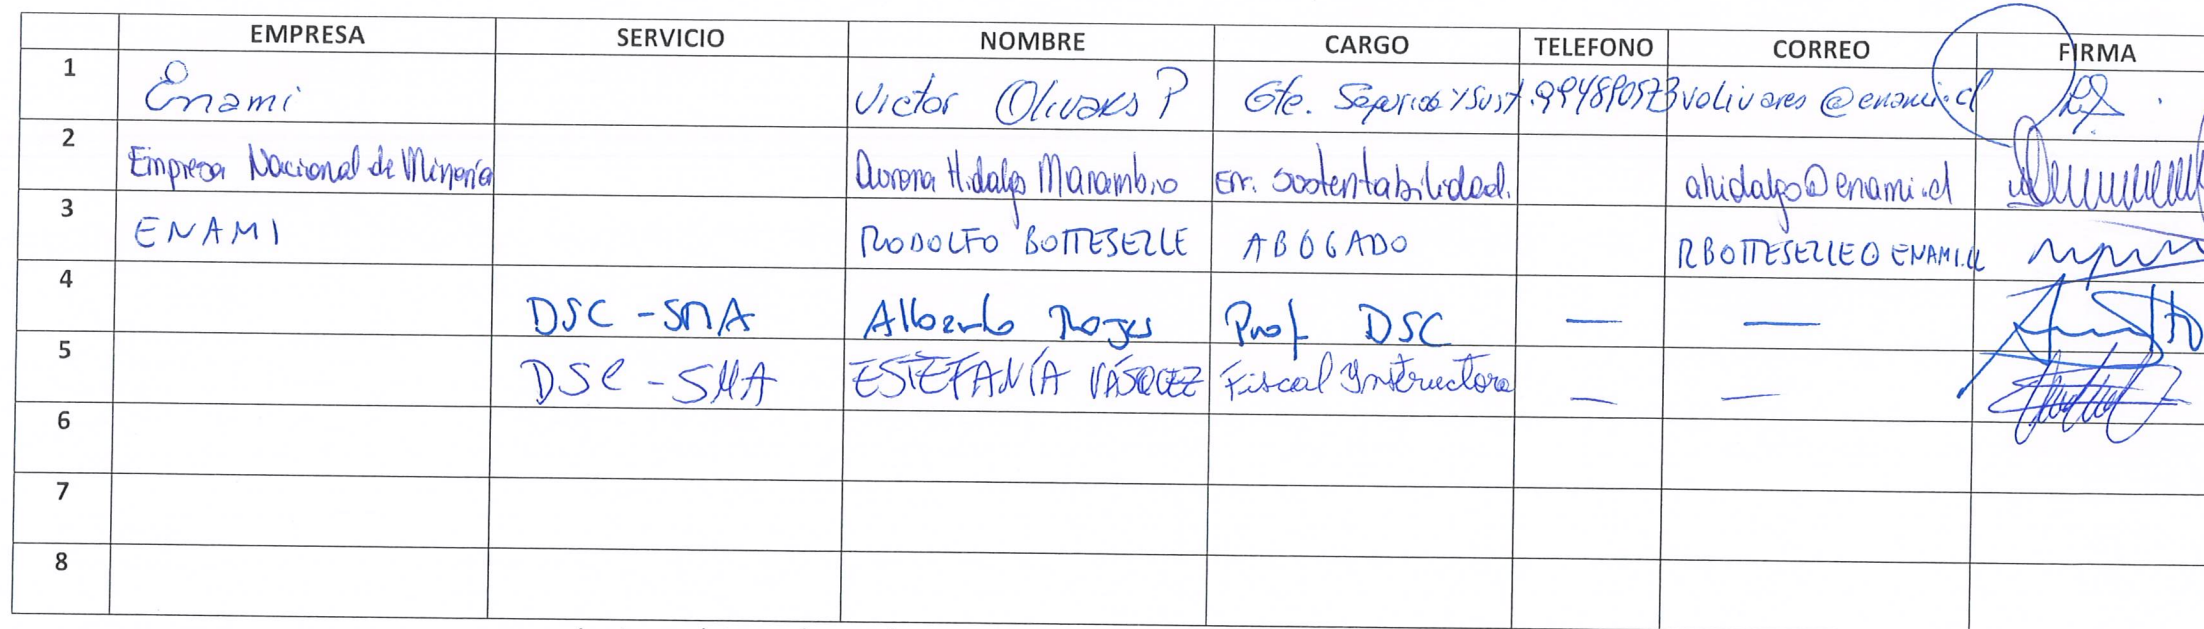 EMPRESA SERVICIO NOMBRE CARGO TELEFONO CORREO FIRMA
1 Enami Victor Olivares P Gte. Seguridad y Sust. 994890573 volivares@enami.cl
2 Empresa Nacional de Minería Aurora Hidalgo Marambio Enc. Sostentabilidad. ahidalgo@enami.cl
3 ENAMI RODOLFO BOTTESELLE ABOGADO RBOTTESELLE@ENAMI.CL
4 DSC - SMA Alberto Rojas Prof DSC — —
5 DSC - SMA ESTEFANÍA VÁSQUEZ Fiscal Instructora — —
6
7
8